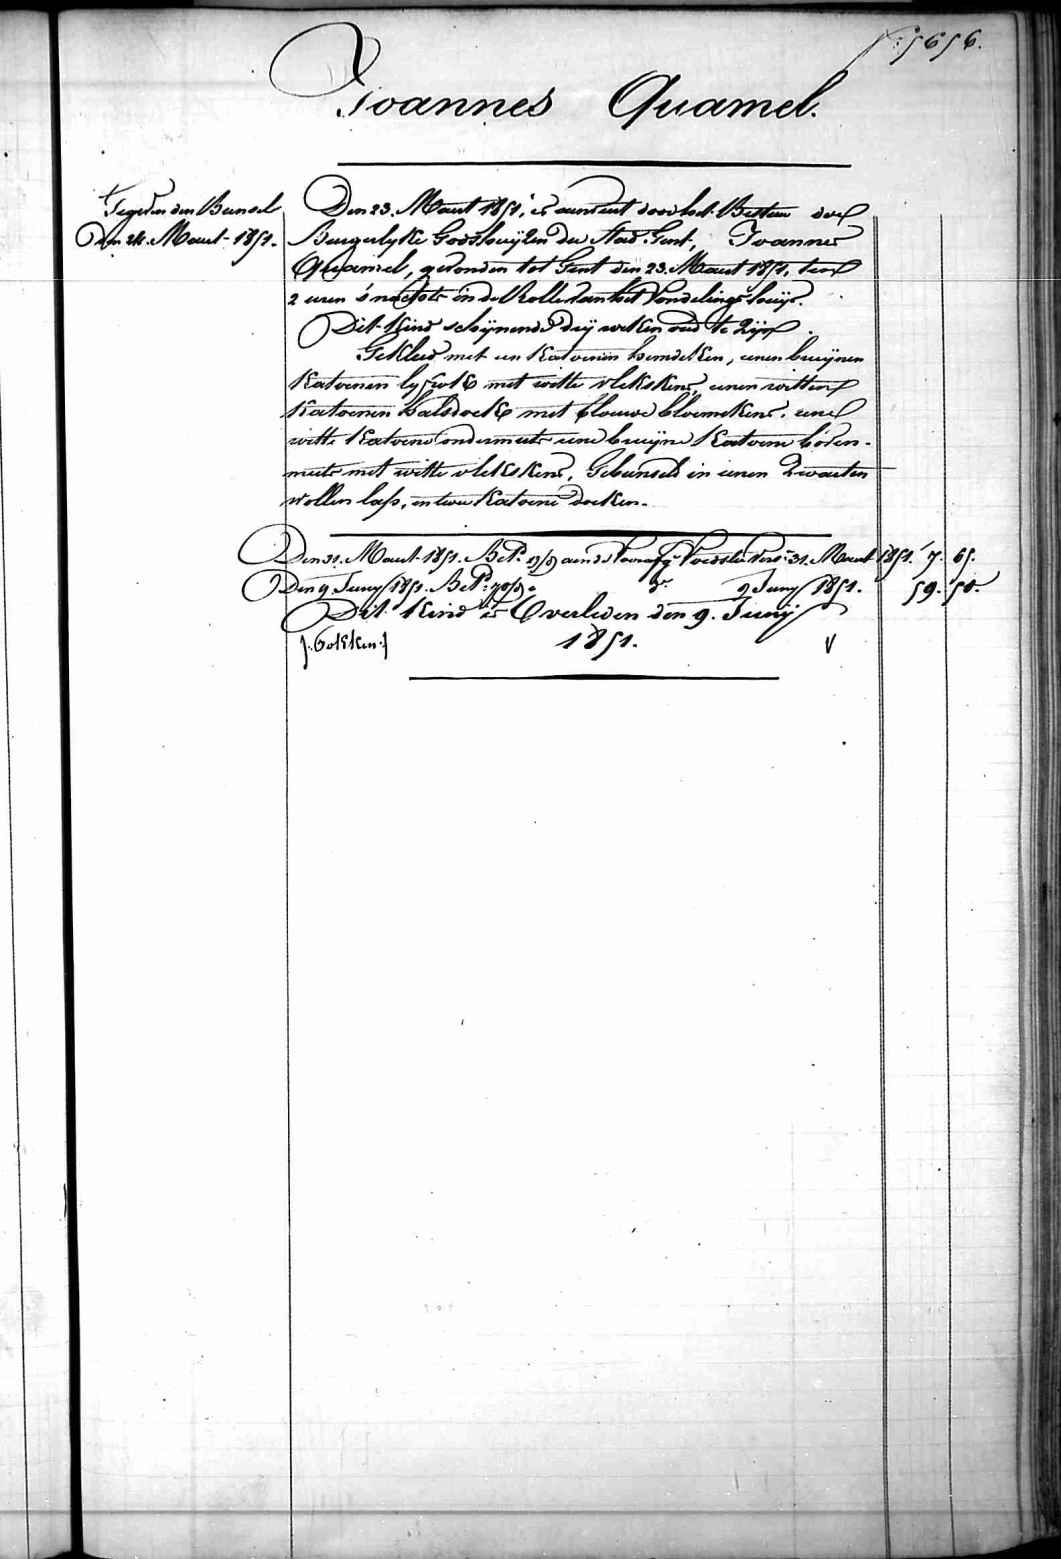 N° 5656.
Joannes Quamel.
Tegeven den Bunsel
Den 24. Maart 1851.
Den 23. Maart 1851, is aenveut door het Bestuer der
Burgerlyke Godshuijzen der Stad Gent, Joannes
Quamel, gevonden tot Gent den 23. Maart 1851, ten
2 uren s'nachts in de Rolle van het Vondelingshuijs.
Dit Kind schijnende drij weken oud te zijn.
Gekleed met een Katoenen hemdeken, eenen bruijnen
Katoenen lyfrok met witte vlekskens, eenen witten
Katoenen halsdoek met blouwe bloemekens, eene
witte Katoene ondermuts eene bruijne Katoene boven-
muts met witte vlekskens, Gebunseld in eenen Zwarten
wollen lap, en twee Katoene doeken.
Den 31. Maart 1851. Bet. aen de Voesster vers. 31. Maart 1851. 7. 65.
Den 9 Juny 1851. Bet. d°. 9 Juny 1851. 59. 50.
Dit Kind is Overleden den 9. Junij
1851.
[:Bokken:]
V